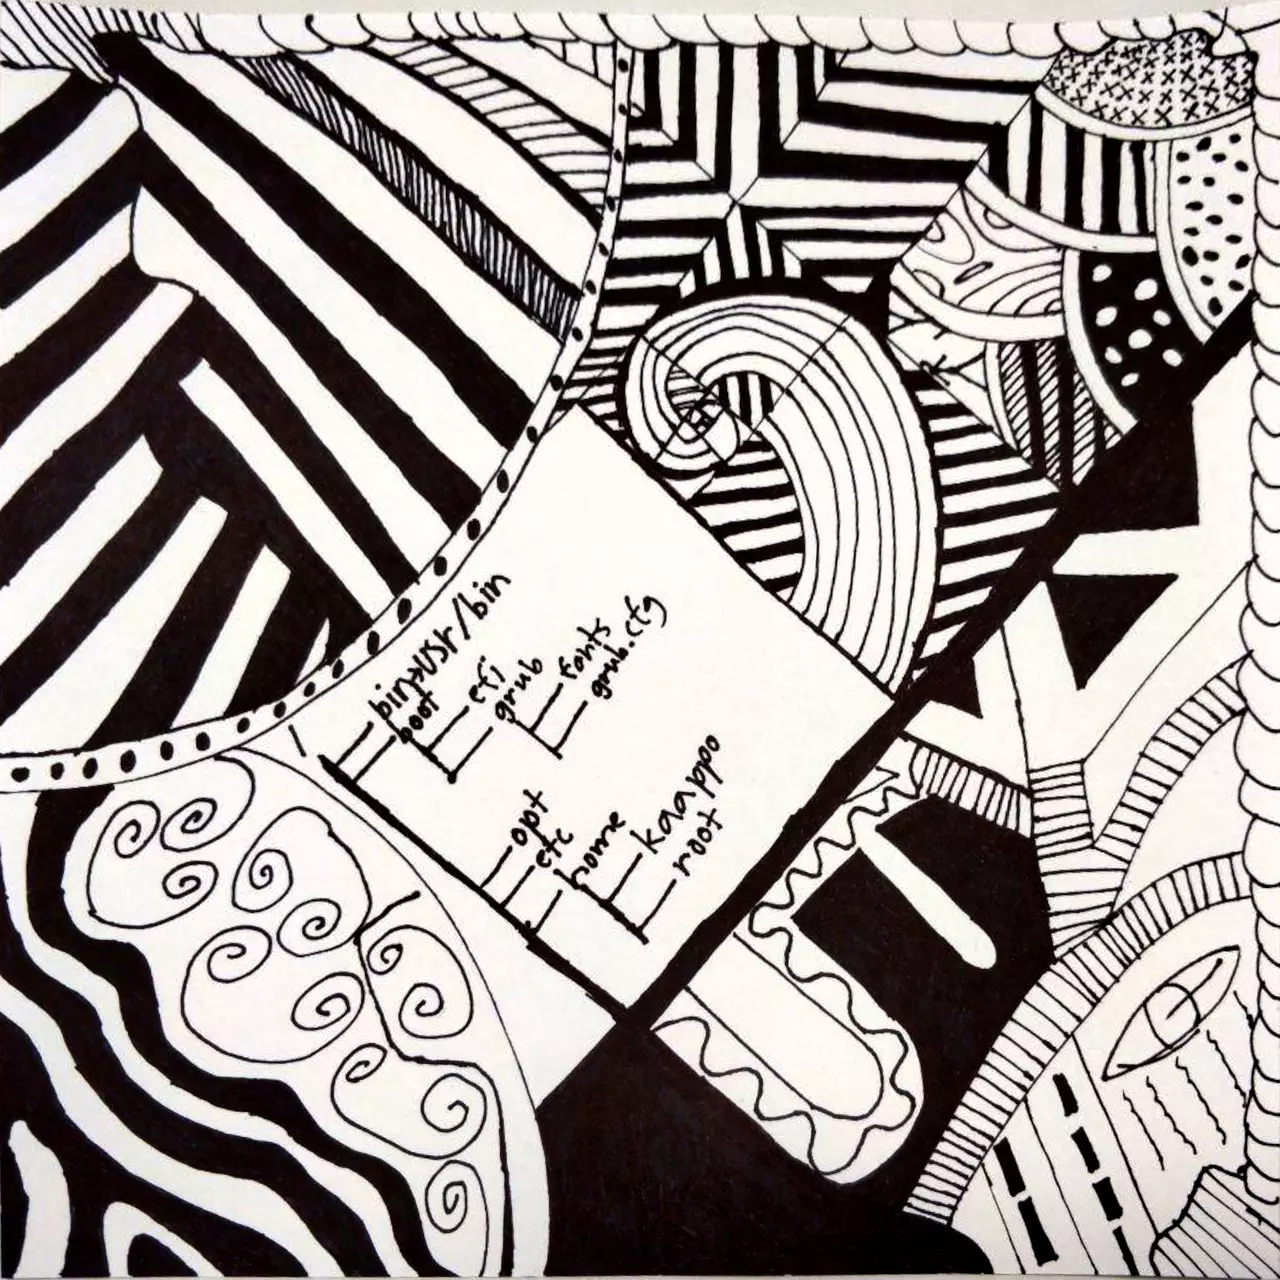 /
bin→usr/bin
boot
efi
grub
fonts
grub.cfg
opt
etc
home
kaappo
root